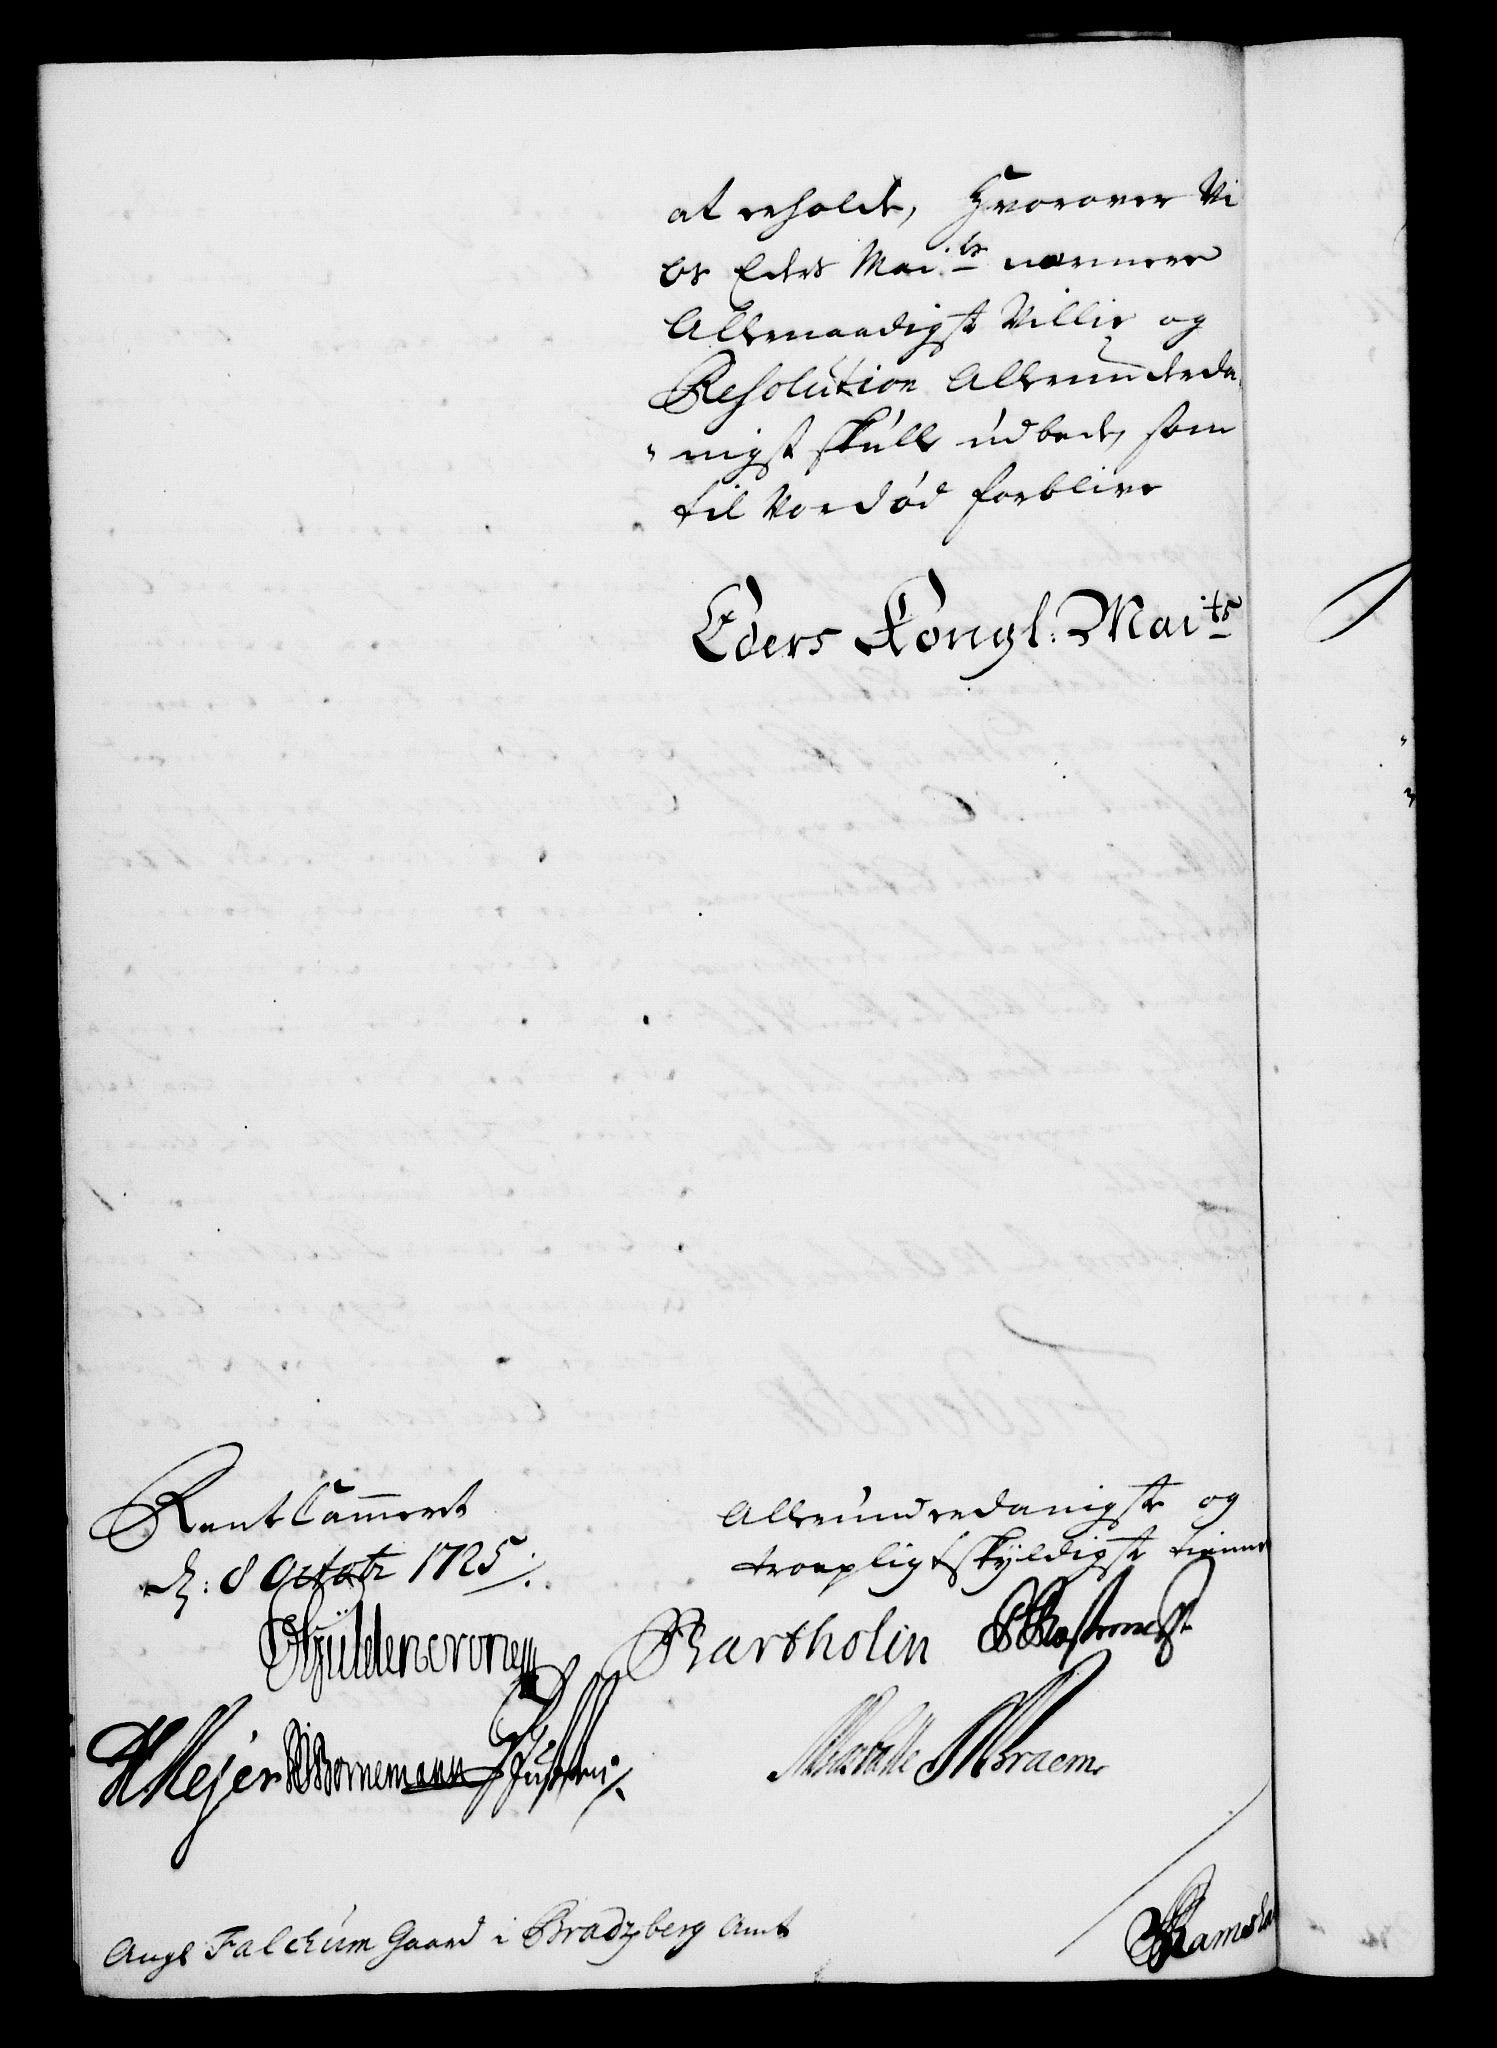 at erholde, Hvorover Vi
os Eders Mai:ts nærmere
Allernaadigste Villie og
Resolution Allerunderda,
" nigst skulle udbede, som
til Vor død forblive
Eders Kongl: Mai:ts
RentCammeret
d: 8 Octobr 1725:/.
Allerunderdanigste og
troepligtskyldigste tienere
Güldencrone
Bartholin
HMejer Bornemann
Braem
Ramsha
Angl Falchum Gaard i Bradzberg Amt